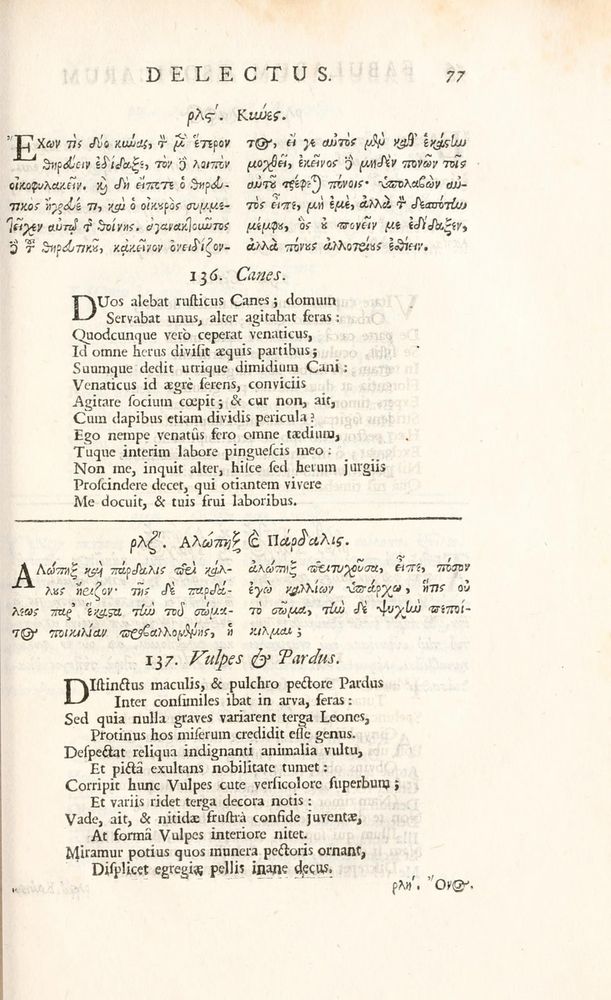 DELECTUS. 77
ρλϛʹ. Κύνες.
Ἔχων τὶς δύο κύνας, τ μ ἕτερον
θηρεύειν ἐδίδαξε, τὸν δ λοιπὸν
οἰκοφυλακεῖν. κ δὴ εἴποτε ὁ θηρευ-
τικὸς ἤγρευέ τι, καὶ ὁ οἰκουρὸς συμμε-
τεῖχεν αὐτῷ τ θοίνης. ἀγανακτοῦντος
δ τ θηρευτικοῦ, κἀκεῖνον ὀνειδίζον-
τος, εἴ γε αὐτὸς μὲν καθ' ἑκάστην
μοχθεῖ, ἐκεῖνος δ μηδὲν πονῶν τοῖς
αὐτοῦ τρέφεται πόνοις· ὑπολαβὼν αὐ-
τὸς εἶπε, μὴ ἐμὲ, ἀλλὰ τ δεσπότην
μέμφου, ὃς οὐ πονεῖν με ἐδίδαξεν,
ἀλλὰ πόνους ἀλλοτρίους ἐσθίειν.
136. Canes.
DUos alebat rusticus Canes; domum
Servabat unus, alter agitabat feras:
Quodcunque verò ceperat venaticus,
Id omne herus divisit æquis partibus;
Suumque dedit utrique dimidium Cani:
Venaticus id ægrè ferens, conviciis
Agitare socium cœpit; & cur non, ait,
Cum dapibus etiam dividis pericula?
Ego nempe venatûs fero omne tædium,
Tuque interim labore pinguescis meo:
Non me, inquit alter, hisce sed herum jurgiis
Proscindere decet, qui otiantem vivere
Me docuit, & tuis frui laboribus.
ρλζʹ. Ἀλώπηξ & Πάρδαλις.
Ἀλώπηξ καὶ πάρδαλις περὶ κάλ-
λους ἤριζον· τῆς δὲ παρδά-
λεως παρ' ἕκαστα τὴν τοῦ σώμα-
τος ποικιλίαν προβαλλομένης, ἡ
ἀλώπηξ περιτυχοῦσα, εἶπε, πόσον
ἐγὼ καλλίων ὑπάρχω, ἥτις οὐ
τὸ σῶμα, τὴν δὲ ψυχὴν πεποί-
κιλμαι;
137. Vulpes & Pardus.
DIstinctus maculis, & pulchro pectore Pardus
Inter consimiles ibat in arva, feras:
Sed quia nulla graves variarent terga Leones,
Protinus hos miserum credidit esse genus.
Despectat reliqua indignanti animalia vultu,
Et pictâ exultans nobilitate tumet:
Corripit hunc Vulpes cute versicolore superbum;
Et variis ridet terga decora notis:
Vade, ait, & nitidæ frustrâ confide juventæ,
At formâ Vulpes interiore nitet.
Miramur potius quos munera pectoris ornant,
Displicet egregiæ pellis inane decus.
ρληʹ. Ὄνος.